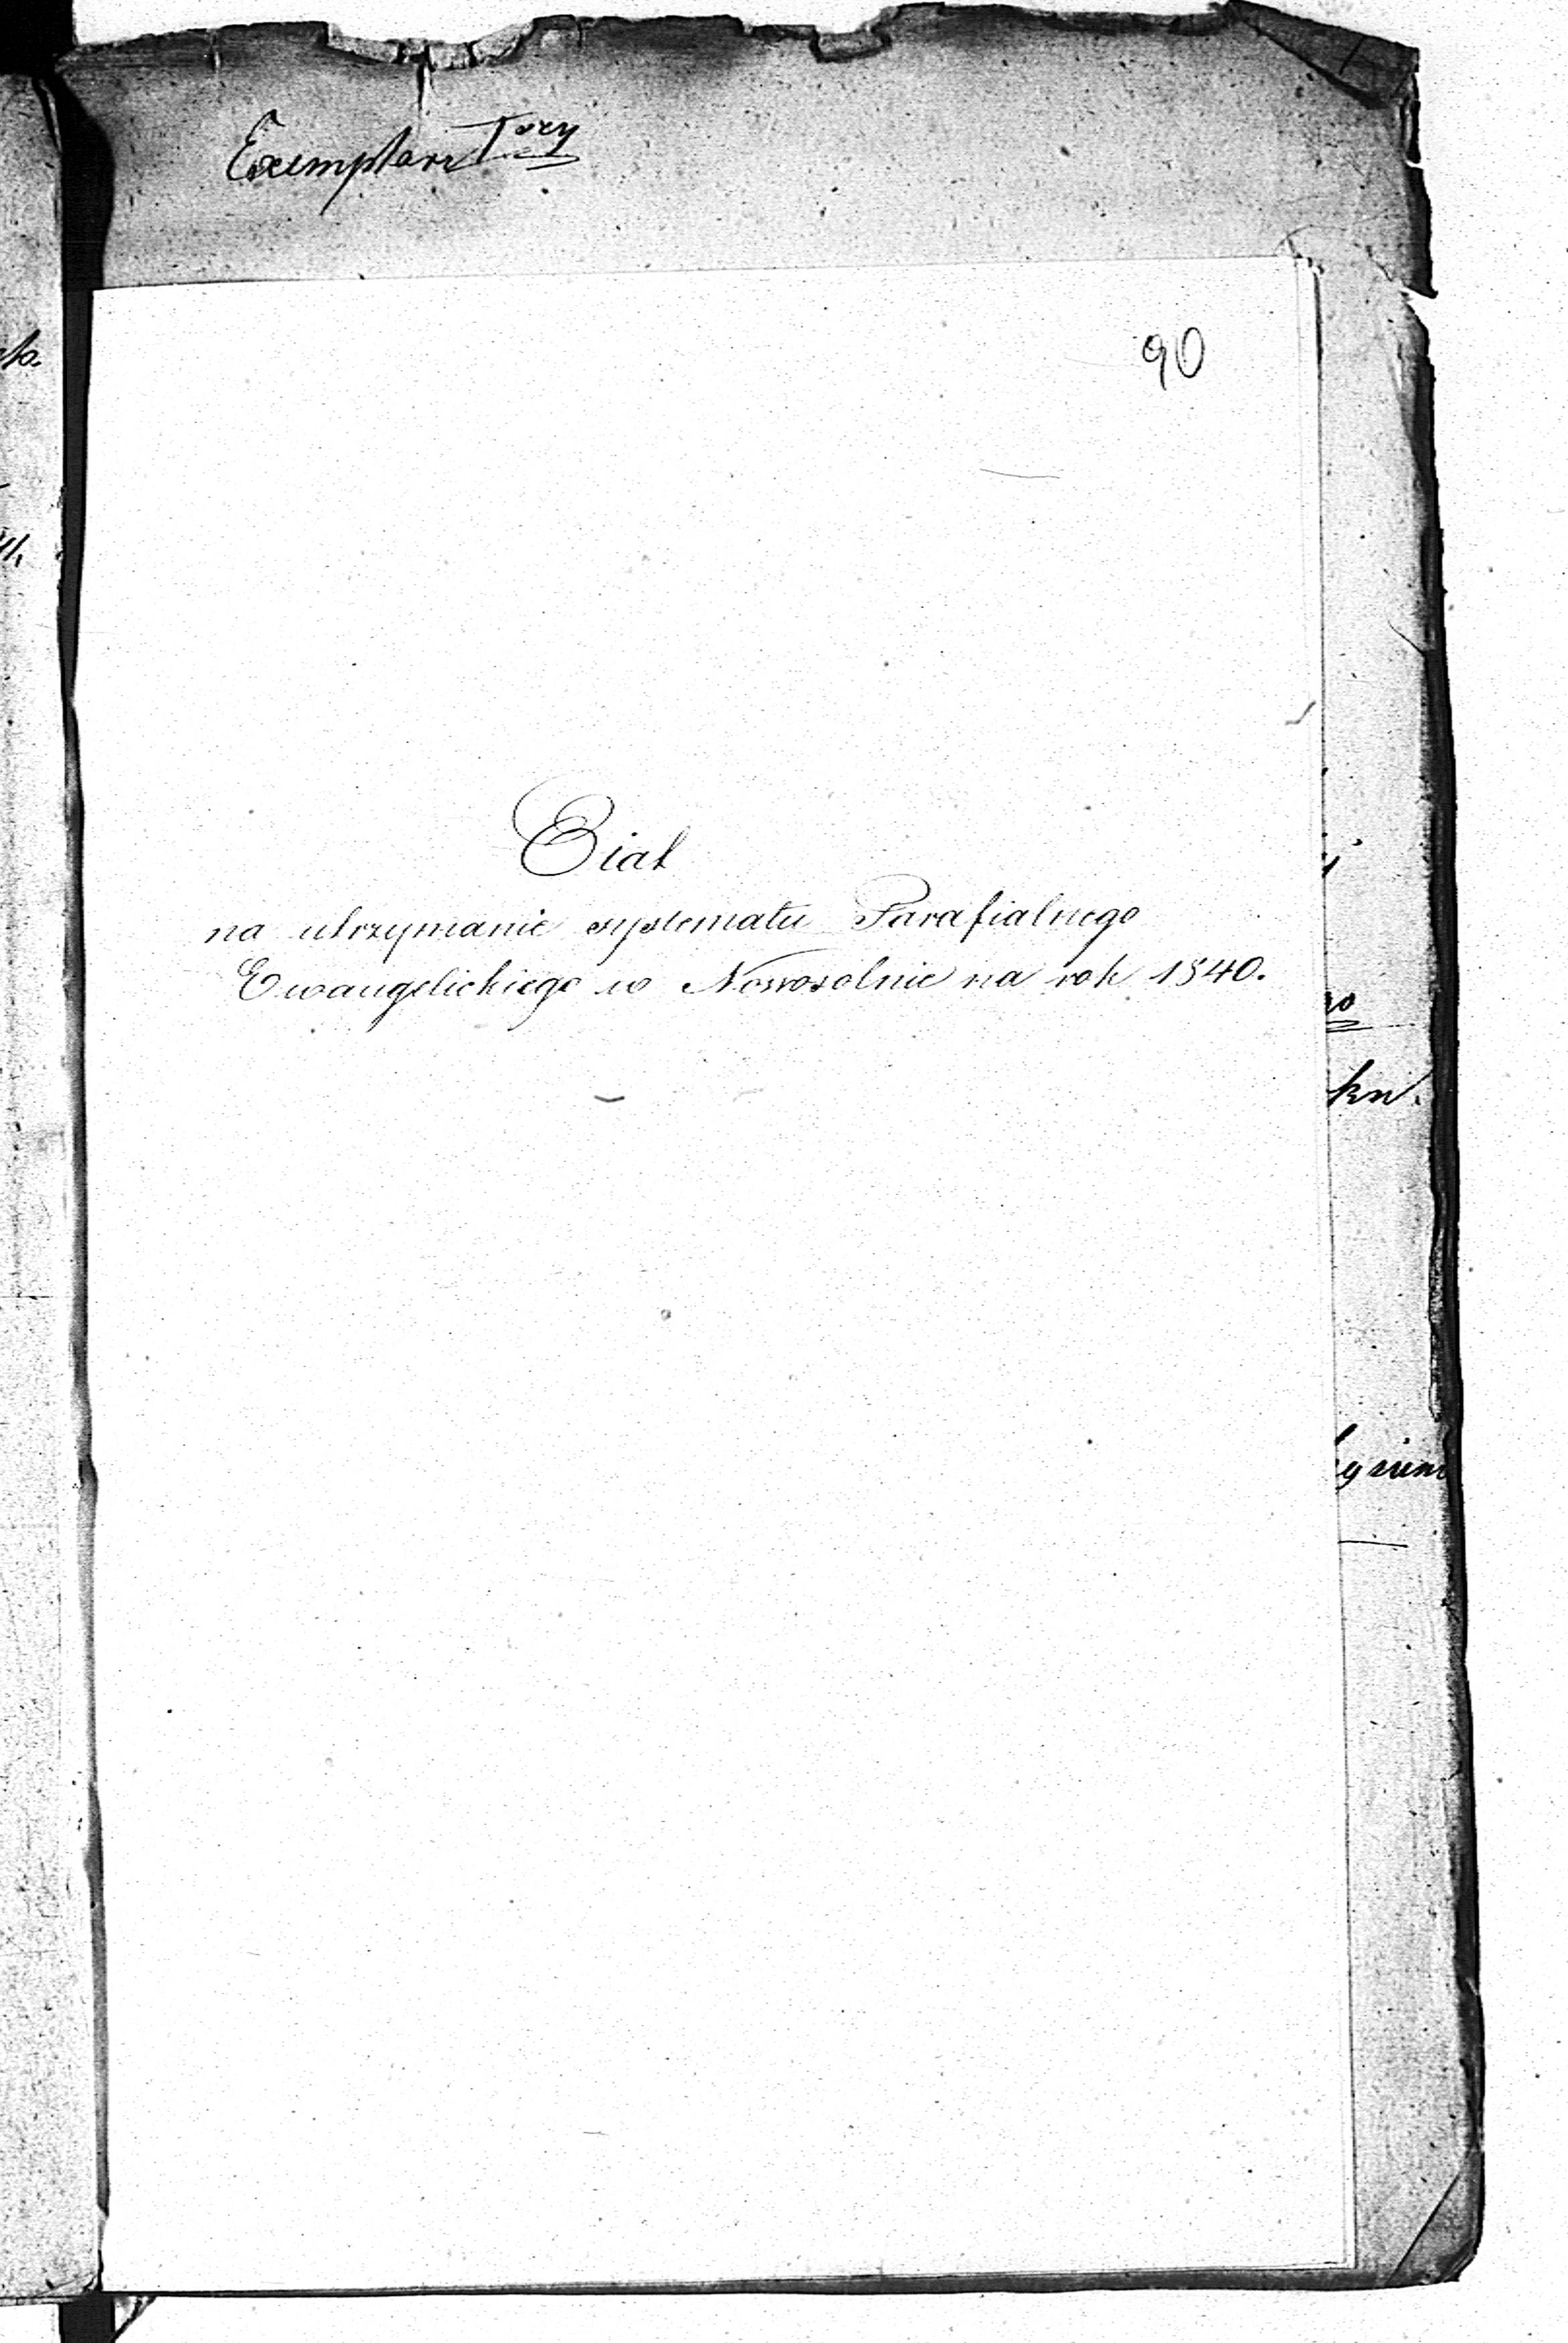 Exemplarz Iszy
90
Etat
na utrzymanie systematu Parafialnego
Ewangelickiego w Nowosolnie na rok 1840.
kn.